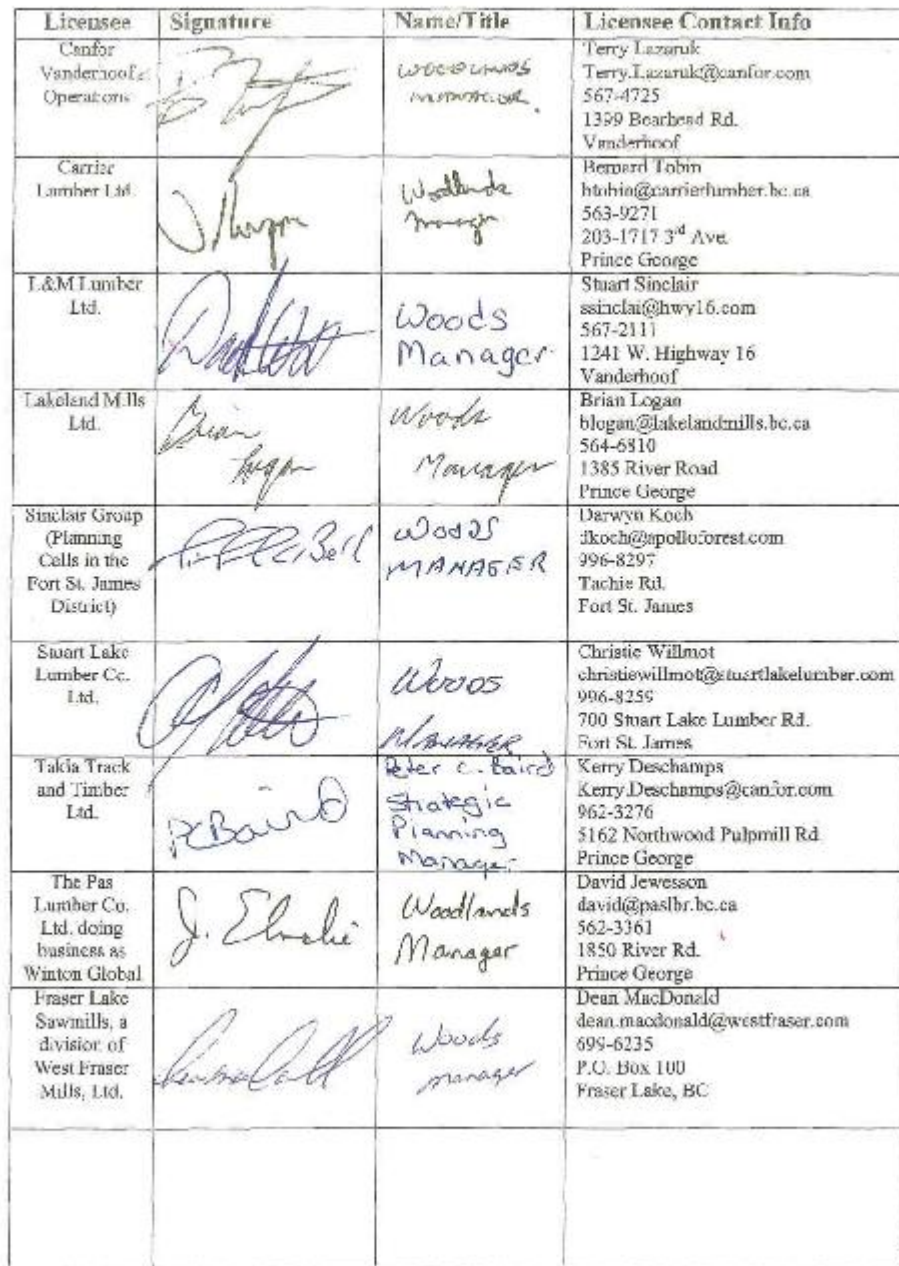 Licensee Signature Name/Title Licensee Contact Info
Canfor
Vanderhoof
Operations
WOODLANDS
MANAGER
Terry Lazaruk
Terry.Lazaruk@canfor.com
567-4725
1399 Bearhead Rd.
Vanderhoof
Carrier
Lumber Ltd.
Woodlands
manager
Bernard Tobin
btobin@carrierlumber.bc.ca
563-9271
203-1717 3rd Ave.
Prince George
L&M Lumber
Ltd.
Woods
Manager
Stuart Sinclair
ssinclai@hwy16.com
567-2111
1241 W. Highway 16
Vanderhoof
Lakeland Mills
Ltd.
Brian
Logan
Woods
Manager
Brian Logan
blogan@lakelandmills.bc.ca
564-6810
1385 River Road
Prince George
Sinclair Group
(Planning
Cells in the
Fort St. James
District)
WOODS
MANAGER
Darwyn Koch
dkoch@apolloforest.com
996-8297
Tachie Rd.
Fort St. James
Stuart Lake
Lumber Co.
Ltd.
WOODS
MANAGER
Christie Willmot
christiewillmot@stuartlakelumber.com
996-8259
700 Stuart Lake Lumber Rd.
Fort St. James
Takla Track
and Timber
Ltd.
PCBaird
Peter C. Baird
Strategic
Planning
Manager
Kerry Deschamps
Kerry.Deschamps@canfor.com
962-3276
5162 Northwood Pulpmill Rd
Prince George
The Pas
Lumber Co.
Ltd. doing
business as
Winton Global
J.
Woodlands
Manager
David Jewesson
david@paslbr.bc.ca
562-3361
1850 River Rd.
Prince George
Fraser Lake
Sawmills, a
division of
West Fraser
Mills, Ltd.
Woods
manager
Dean MacDonald
dean.macdonald@westfraser.com
699-6235
P.O. Box 100
Fraser Lake, BC